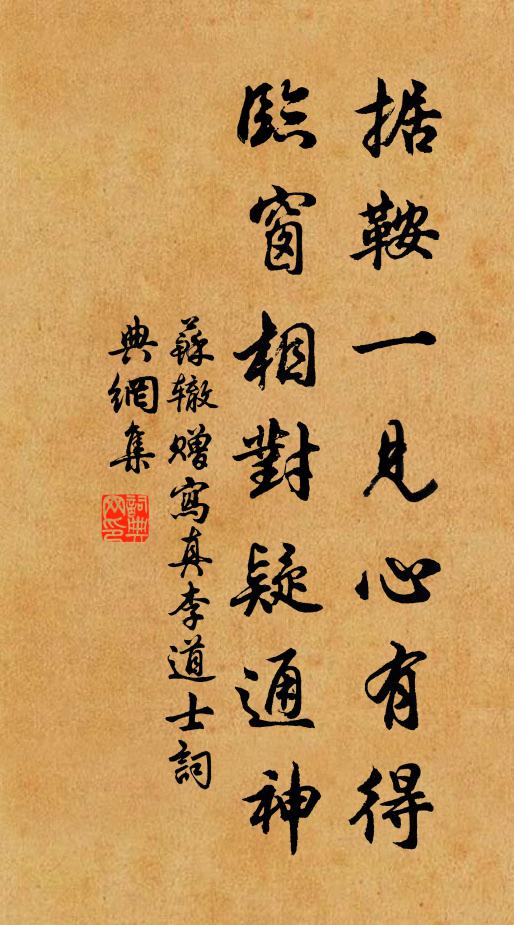 据鞍一見心有得
臨窗相對疑通神
蘇轍贈寫真李道士詞
典網集
詞典網印